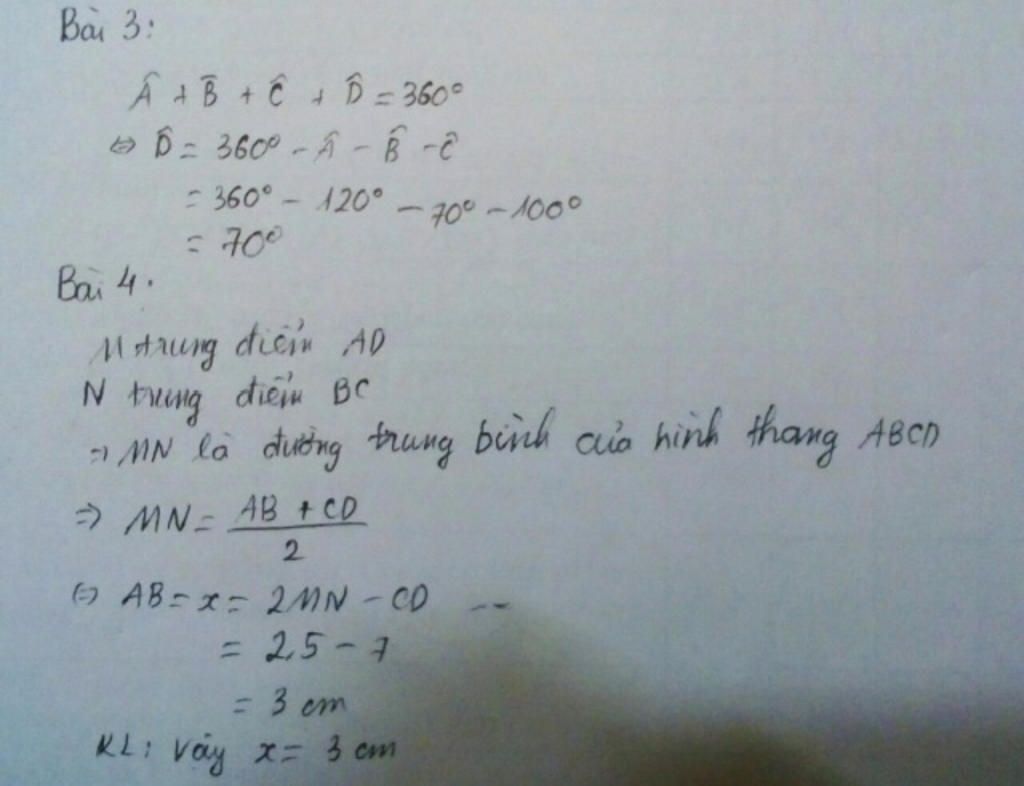 Bài 3:
Â + B̂ + Ĉ + D̂ = 360°
⇔ D̂ = 360° - Â - B̂ - Ĉ
= 360° - 120° - 70° - 100°
= 70°
Bài 4.
M trung điểm AD
N trung điểm BC
⇒ MN là đường trung bình của hình thang ABCD
⇒ MN = \frac{AB + CD}{2}
⇔ AB = x = 2MN - CD --
= 2.5 - 7
= 3 cm
KL: Vậy x = 3 cm